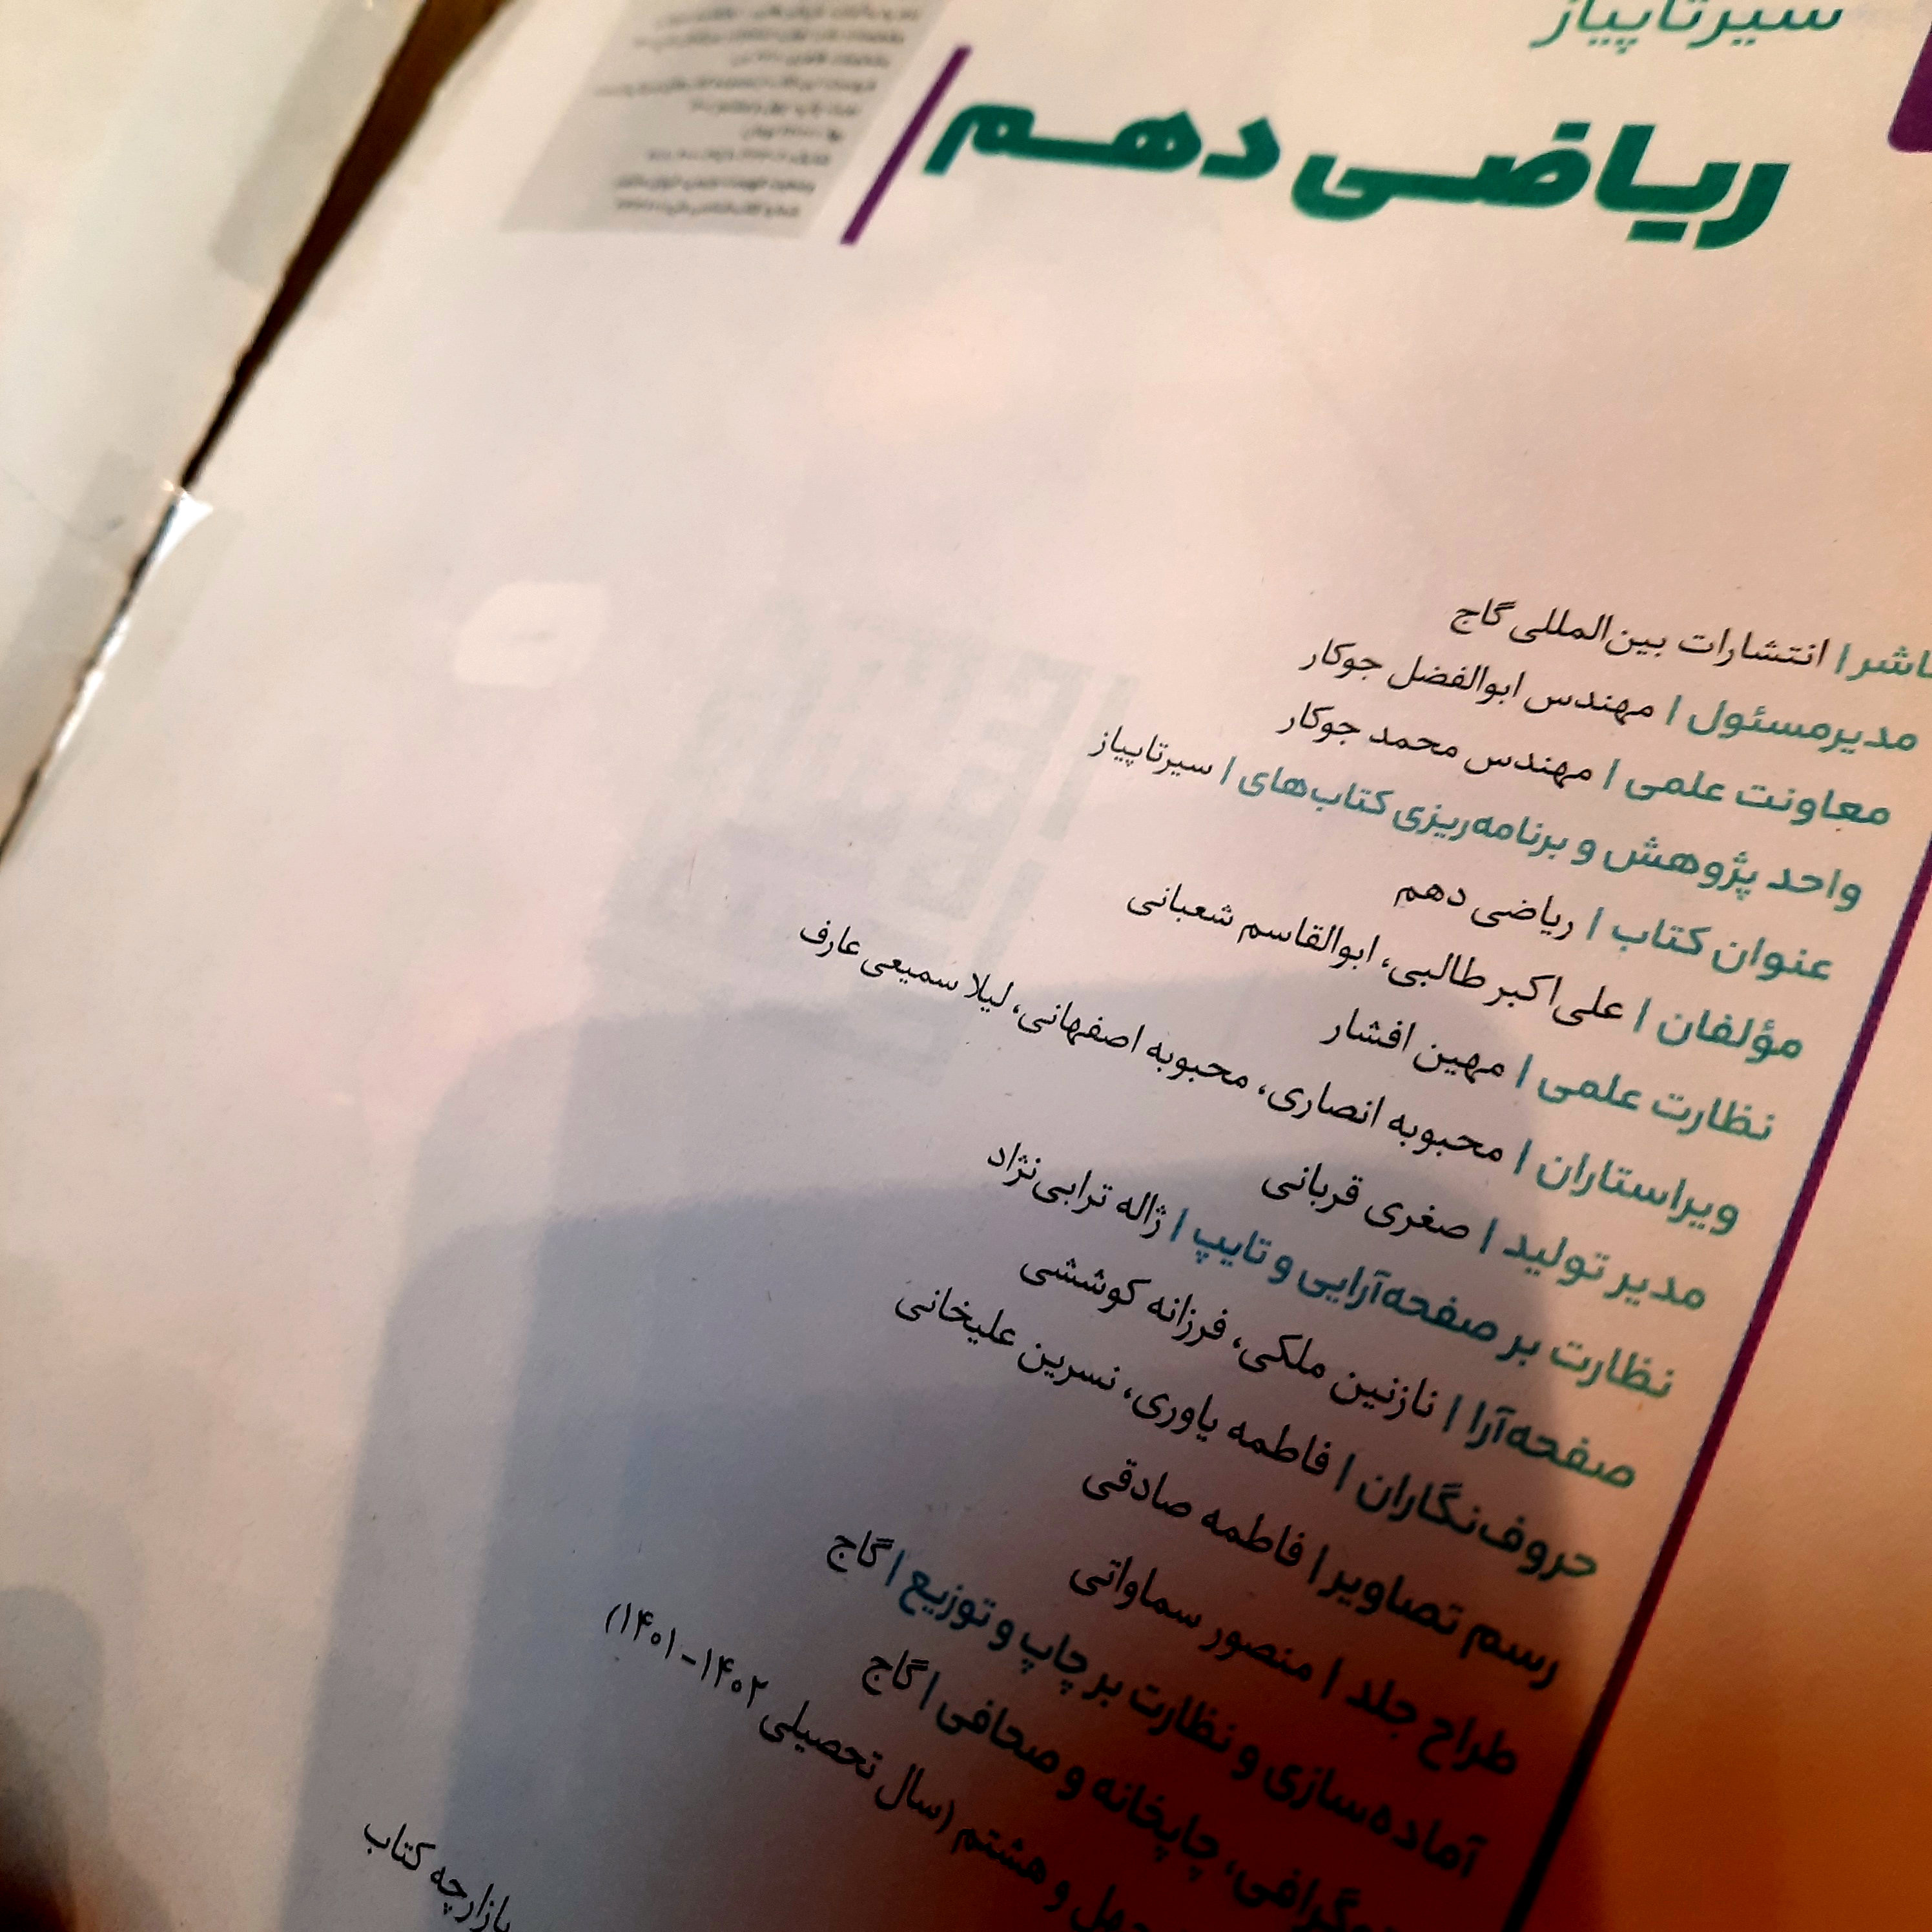 سیرتاپیاز
ریاضی دهم
انتشارات بین‌المللی گاج
مدیرمسئول | مهندس ابوالفضل جوکار
معاونت علمی | مهندس محمد جوکار
واحد پژوهش و برنامه‌ریزی کتاب‌های | سیرتاپیاز
عنوان کتاب | ریاضی دهم
مؤلفان | علی‌اکبر طالبی، ابوالقاسم شعبانی
نظارت علمی | مهین افشار
ویراستاران | محبوبه انصاری، محبوبه اصفهانی، لیلا سمیعی عارف
مدیر تولید | صغری قربانی
نظارت بر صفحه‌آرایی و تایپ | ژاله ترابی‌نژاد
صفحه‌آرا | نازنین ملکی، فرزانه کوششی
حروف‌نگاران | فاطمه یاوری، نسرین علیخانی
رسم تصاویر | فاطمه صادقی
طراح جلد | منصور سماواتی
آماده‌سازی و نظارت بر چاپ و توزیع | گاج
چاپخانه و صحافی | گاج
و هشتم (سال تحصیلی ۱۴۰۲-۱۴۰۱)
بازارچه کتاب